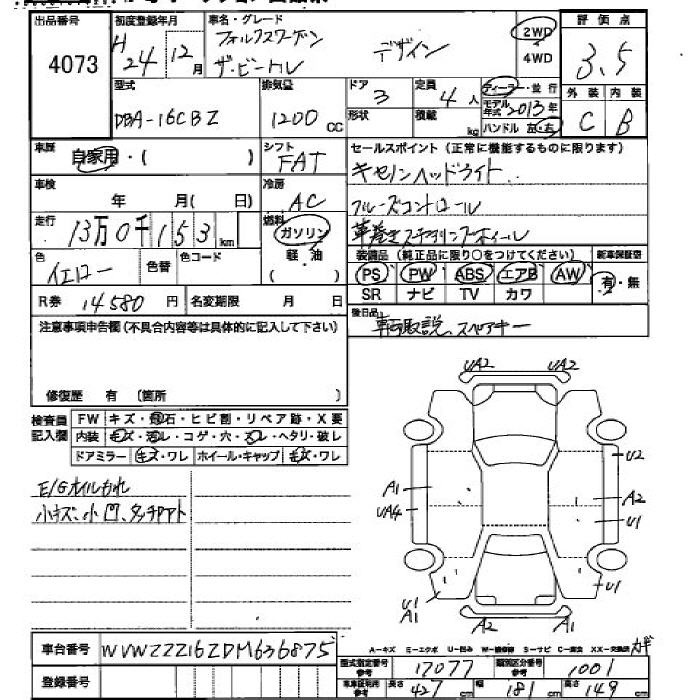 出品番号 4073
初度登録年月 H24年12月
車名・グレード フォルクスワーゲン ザ・ビートル デザイン
2WD 4WD
評価点 3.5
型式 DBA-16CBZ
排気量 1200cc
ドア 3 形状
定員 4人 積載 kg
ディーラー・並行
モデル年式 2013年
ハンドル 左・右
外装 C 内装 B
車歴 自家用・( )
シフト FAT
セールスポイント(正常に機能するものに限ります)
キセノンヘッドライト
クルーズコントロール
革巻きステアリングホイール
車検 年 月( 日)
冷房 AC
走行 13万0千153km
燃料 ガソリン 軽・油 ( )
色 イエロー 色替 色コード
装備品(純正品に限り○をつけてください)
PS PW ABS エアB AW
SR ナビ TV カワ
新車保証書 有・無
R券 14580円 名変期限 月 日
後日品 車両取説、スペアキー
注意事項申告欄(不具合内容等は具体的に記入して下さい)
修復歴 有 (箇所 )
検査員記入欄
FW キズ・飛石・ヒビ割・リペア跡・X要
内装 キズ・汚レ・コゲ・穴・スレ・ヘタリ・破レ
ドアミラー キズ・ワレ ホイール・キャップ キズ・ワレ
E/Gオイルもれ
小キズ、小凹、多タッチアト
UA2 UA2
U2
A1 A2
UA4 U1
U1 U1
A1
A2 A1
車台番号 WVWZZZ16ZDM636875
登録番号
A-キズ E-エクボ U-凹み W-補修跡 S-サビ C-腐食 XX-交換済
型式指定番号 17077 類別区分番号 1001
車庫証明用参考 長さ 427cm 幅 181cm 高さ 149cm